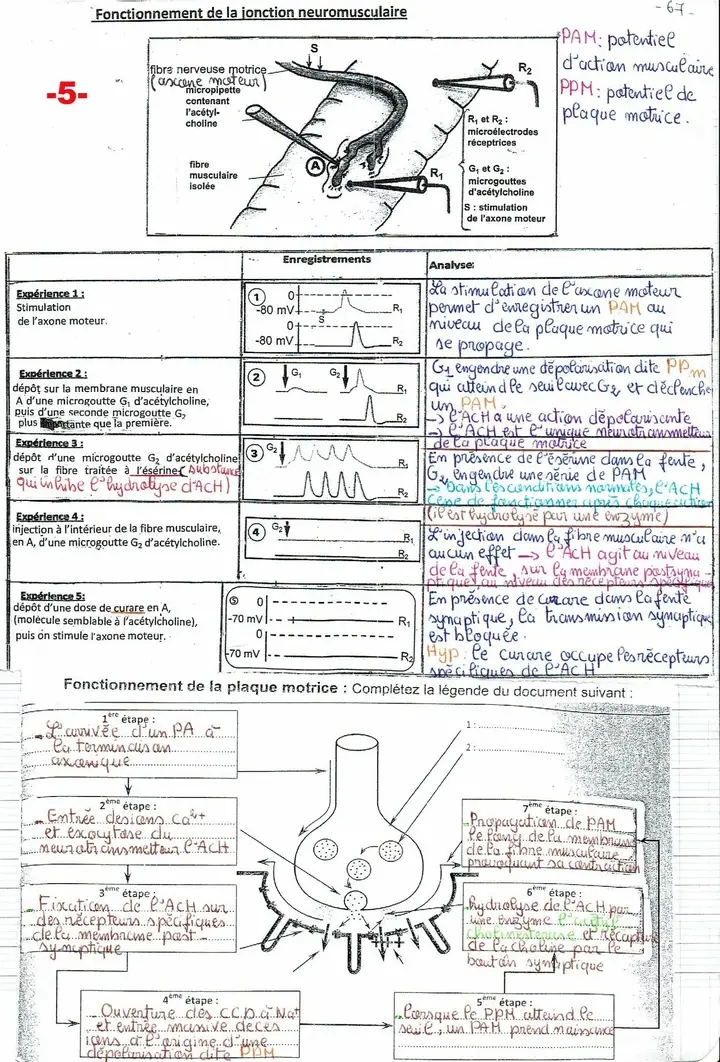 Fonctionnement de la jonction neuromusculaire
- 67 -
-5-
PAM: potentiel
d'action musculaire
PPM: potentiel de
plaque motrice.
S
fibre nerveuse motrice
(axone moteur)
micropipette
contenant
l'acétyl-
choline
fibre
musculaire
isolée
A
R2
R1
R₁ et R₂ :
microélectrodes
réceptrices
G₁ et G₂ :
microgouttes
d'acétylcholine
S : stimulation
de l'axone moteur
Enregistrements
Analyse:
Expérience 1 :
Stimulation
de l'axone moteur.
1
0
-80 mV
S
R₁
0
-80 mV
R₂
La stimulation de l'axone moteur
permet d'enregistrer un PAM au
niveau de la plaque motrice qui
se propage.
Expérience 2 :
dépôt sur la membrane musculaire en
A d'une microgoutte G₁ d'acétylcholine,
puis d'une seconde microgoutte G₂
plus importante que la première.
2
G₁
G₂
R₁
R₂
G₁ engendre une dépolarisation dite PPm
qui atteind le seuil avec G₂, et déclenche
un PAM.
→ l'ACH a une action dépolarisante
→ l'ACH est l'unique neurotransmetteur
de la plaque motrice
Expérience 3 :
dépôt d'une microgoutte G₂ d'acétylcholine
sur la fibre traitée à l'ésérine (substance
qui inhibe l'hydrolyse d'ACH)
3
G₂
R₁
R₂
En présence de l'ésérine dans la fente,
G₂ engendre une série de PAM
→ Dans les conditions normales, l'ACH
cesse de fonctionner après chaque action
(il est hydrolysé par une enzyme)
Expérience 4 :
injection à l'intérieur de la fibre musculaire,
en A, d'une microgoutte G₂ d'acétylcholine.
4
G₂
R₁
R₂
L'injection dans la fibre musculaire n'a
aucun effet → l'ACH agit au niveau
de la fente, sur la membrane postsyna-
ptique, au niveau des récepteurs spécifiques
Expérience 5:
dépôt d'une dose de curare en A,
(molécule semblable à l'acétylcholine),
puis on stimule l'axone moteur.
5
0
-70 mV
R₁
0
-70 mV
R₂
En présence de curare dans la fente
synaptique, la transmission synaptique
est bloquée.
Hyp: le curare occupe les récepteurs
spécifiques de l'ACH
Fonctionnement de la plaque motrice : Complétez la légende du document suivant :
1 :
2 :
1ère étape :
L'arrivée d'un PA à
la terminaison
axonique
2ème étape :
Entrée des ions Ca²⁺
et exocytose du
neurotransmetteur l'ACH
3ème étape :
Fixation de l'ACH sur
des récepteurs spécifiques
de la membrane post-
synaptique
4ème étape :
Ouverture des CCD à Na⁺
et entrée massive de ces
ions à l'origine d'une
dépolarisation dite PPM
5ème étape :
Lorsque le PPM atteind le
seuil, un PAM prend naissance
6ème étape :
hydrolyse de l'ACH par
une enzyme
cholinestérase et recapture
de la choline par le
bouton synaptique
7ème étape :
Propagation de PAM
le long de la membrane
de la fibre musculaire
provoquant sa contraction